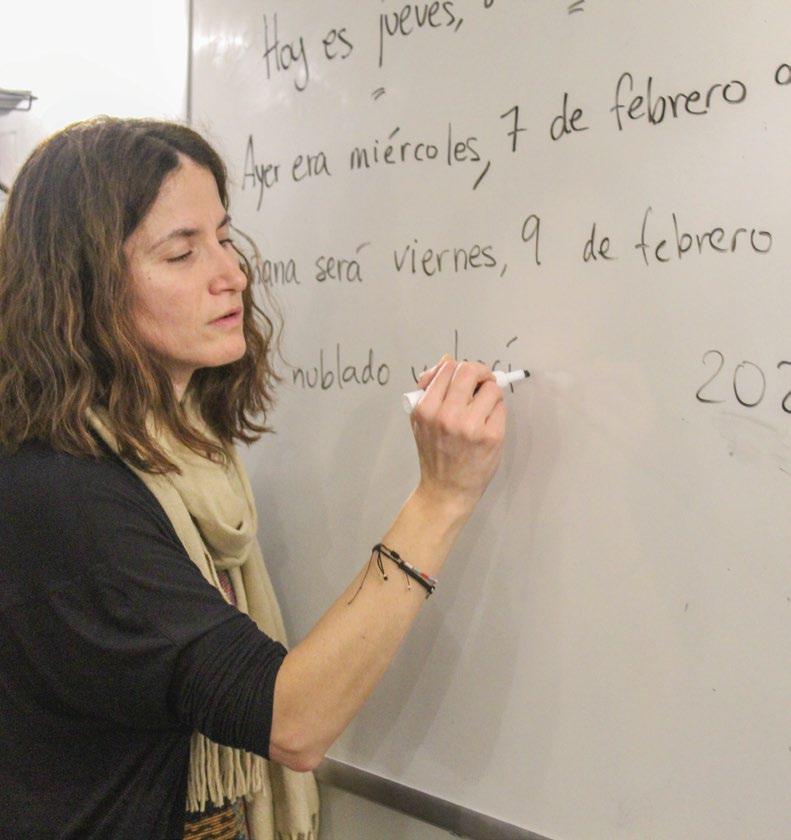 Hoy es jueves,
Ayer era miércoles, 7 de febrero
será viernes, 9 de febrero
nublado